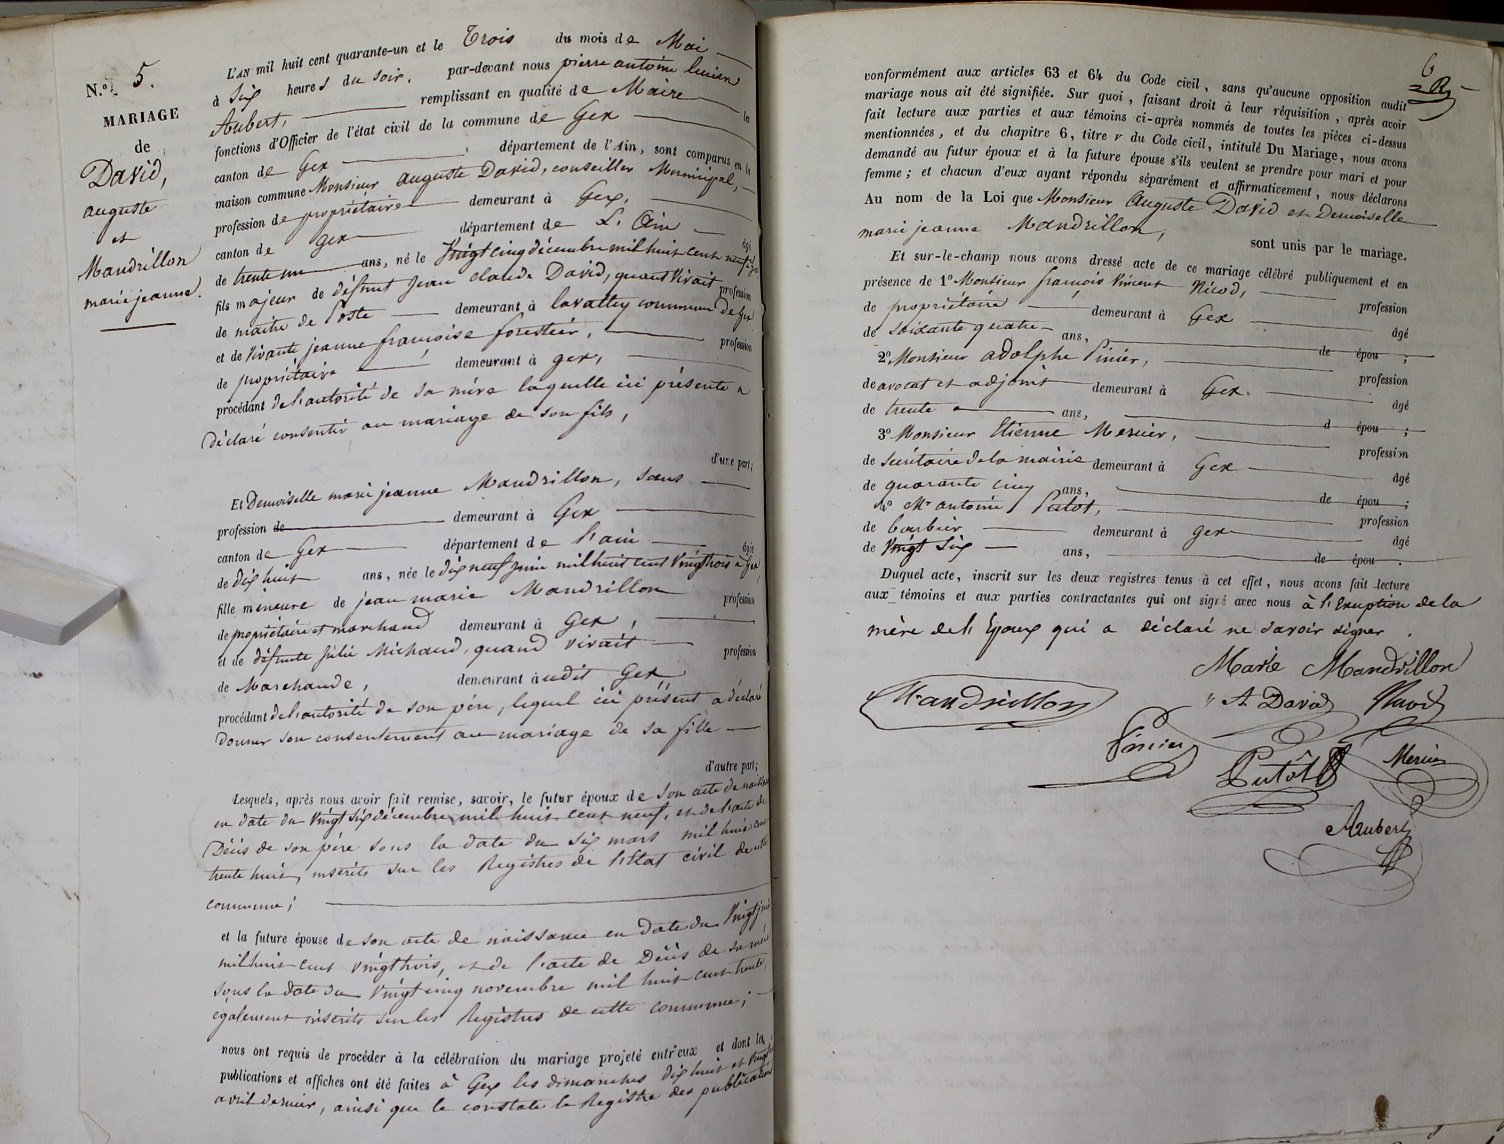 N.o 5.
MARIAGE
de
David,
auguste
et
Mandrillon
marie jeanne.
L'AN mil huit cent quarante-un et le Trois du mois de Mai
à Six heures du soir, par-devant nous pierre antoine lucien
Aubert, remplissant en qualité de Maire les
fonctions d'Officier de l'état civil de la commune de Gex
canton de Gex, département de l'Ain, sont comparus en la
maison commune Monsieur auguste David, conseiller Municipal,
profession de propriétaire demeurant à Gex,
canton de gex département de L'Ain âgé
de trente un ans, né le Vingt cinq décembre mil huit cent neuf à Gex
fils majeur de défunt Jean claude David, quand Vivait profession
de maitre de Poste demeurant à lavattay commune de Gex
et de Vivante jeanne françoise forestier, profession
de propriétaire demeurant à gex,
procédant de l'autorité de sa mère laquelle ici présente a
déclaré consentir au mariage de son fils,
d'une part;
Et Demoiselle marie jeanne Mandrillon, sans
profession de demeurant à Gex
canton de Gex département de l'ain âgée
de dix huit ans, née le dix neuf juin mil huit cent Vingt trois à Gex,
fille mineure de jean marie Mandrillon profession
de propriétaire et marchand demeurant à Gex,
et de défunte Julie Michaud, quand vivait profession
de Marchande, demeurant audit Gex
procédant de l'autorité de son père, lequel ici présent a déclaré
donner son consentement au mariage de sa fille
d'autre part;
Lesquels, après nous avoir fait remise, savoir, le futur époux de son acte de naissance
en date du Vingt Six décembre mil huit cent neuf, et de l'acte de
Décès de son père sous la date du Six mars mil huit cent
trente huit, insérés sur les Registres de l'Etat civil de cette
commune;
et la future épouse de son acte de naissance en date du Vingt juin
mil huit cent Vingt trois, et de l'acte de Décès de sa mère
sous la date du Vingt cinq novembre mil huit cent trente,
également insérés sur les Registres de cette commune;
nous ont requis de procéder à la célébration du mariage projeté entr'eux et dont les
publications et affiches ont été faites à Gex les dimanches dix huit et Vingt
avril dernier, ainsi que le constate le Registre des publications
6
conformément aux articles 63 et 64 du Code civil, sans qu'aucune opposition audit
mariage nous ait été signifiée. Sur quoi, faisant droit à leur réquisition, après avoir
fait lecture aux parties et aux témoins ci-après nommés de toutes les pièces ci-dessus
mentionnées, et du chapitre 6, titre v du Code civil, intitulé Du Mariage, nous avons
demandé au futur époux et à la future épouse s'ils veulent se prendre pour mari et pour
femme; et chacun d'eux ayant répondu séparément et affirmativement, nous déclarons
Au nom de la Loi que Monsieur Auguste David et Demoiselle
marie jeanne Mandrillon, sont unis par le mariage.
Et sur-le-champ nous avons dressé acte de ce mariage célébré publiquement et en
présence de 1o Monsieur françois Vincent Nicod, profession
de propriétaire demeurant à Gex âgé
de soixante quatre ans, de épou ;
2o Monsieur adolphe Pinier, profession
de avocat et adjoint demeurant à Gex. âgé
de trente ans, d épou ;
3o Monsieur Etienne Mercier, profession
de Secrétaire de la mairie demeurant à Gex âgé
de quarante cinq ans, de épou ;
4o Mr antoine Putot, profession
de barbier demeurant à gex âgé
de Vingt Six ans, de épou .
Duquel acte, inscrit sur les deux registres tenus à cet effet, nous avons fait lecture
aux témoins et aux parties contractantes qui ont signé avec nous à l'Exeuption de la
mère de l'Epoux qui a déclaré ne savoir signer.
Marie Mandrillon
Mandrillon
A. David Nicod
Pinier
Putôt
Mercier
Aubert